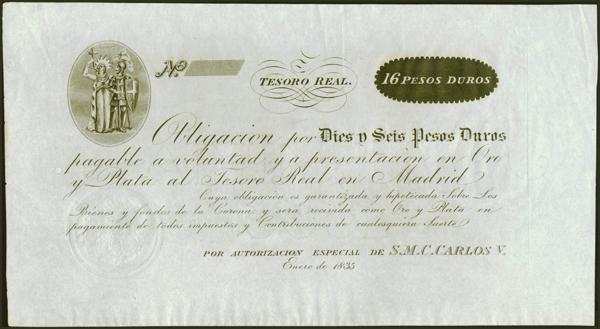 No.
TESORO REAL.
16 PESOS DUROS
Obligacion por Dies y Seis Pesos Duros
pagable a voluntad y a presentacion en Oro
y Plata al Tesoro Real en Madrid
Cuya obligacion es garantizada y hipotecada Sobre Los
Bienes y fondos de la Corona; y sera recivida como Oro y Plata en
pagamiento de todos impuestos y Contribuciones de cualesquiera Suerte
POR AUTORIZACION ESPECIAL DE S.M.C. CARLOS V.
Enero de 1835